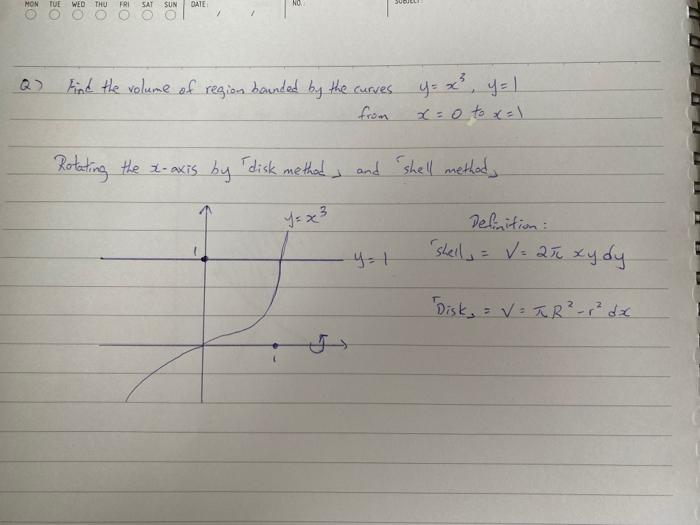 MON TUE WED THU FRI SAT SUN DATE NO. SUBJECT
Q) Find the volume of region bounded by the curves y = x³, y = 1
from x = 0 to x = 1
Rotating the x-axis by 「disk method」 and 「shell method」
y = x³
Definition:
1
y = 1
「shell」 = V = 2π xy dy
「Disk」 = V = π R² - r² dx
1